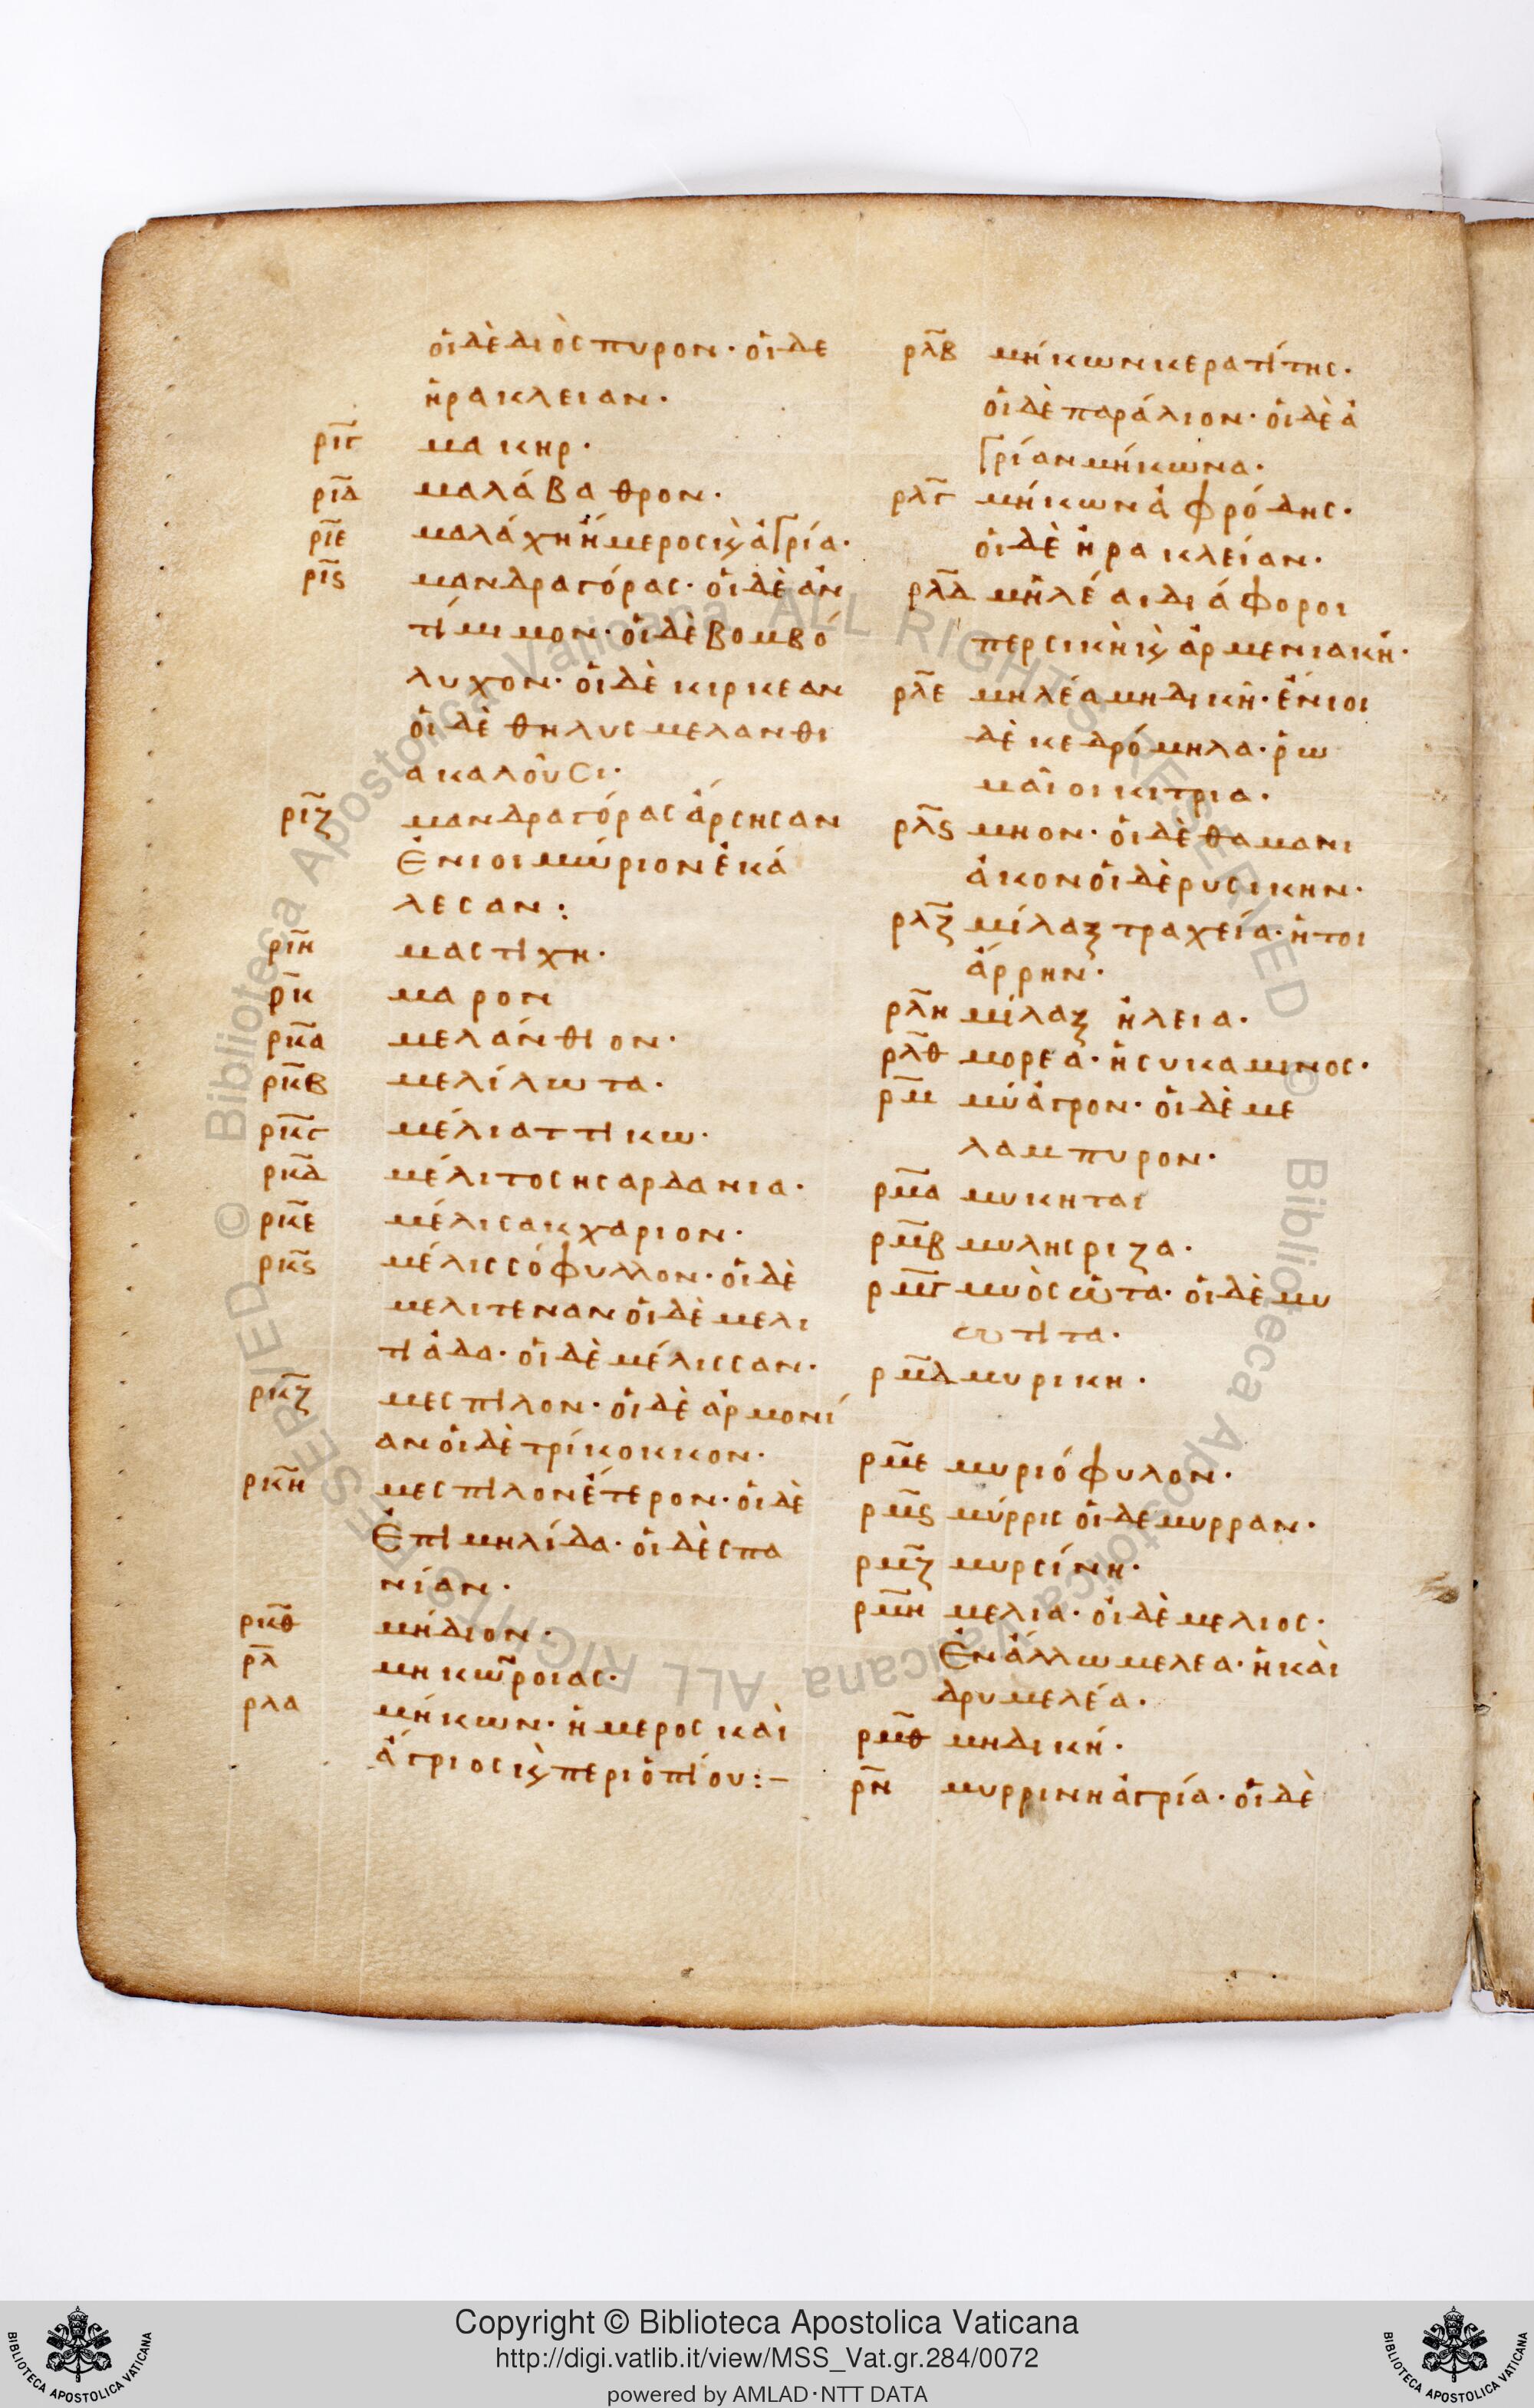 οἱ δὲ διὸς πυρον· οἱ δε
ἡρακλειαν·
ριγ μακηρ·
ριδ μαλάβαθρον·
ριε μαλάχη ἥμερος κ(αὶ) ἀγρία·
ρις μανδραγόρας· οἱ δὲ ἀν
τίμιμον· οἱ δὲ βομβό
λυχον· οἱ δὲ κιρκεαν
οἱ δὲ θηλυς μελανθι
α καλοῦσι·
ριζ μανδραγόρας ἄρσης αν
ἐνιοι μώριον ἐκά
λεσαν:
ριη μαστιχη·
ρκ μαρον
ρκα μελάνθιον·
ρκβ μελίλωτα·
ρκγ μέλι αττικω·
ρκδ μέλιτος ησαρδανια·
ρκε μέλι σακχαριον·
ρκς μέλισσόφυλλον· οἱ δὲ
μελιτεναν οἱ δὲ μελι
τιάδα· οἱ δὲ μέλισσαν·
ρκζ μεσπιλον· οἱ δὲ ἀρμονί
αν οἱ δὲ τρίκοκκον·
ρκη μεσπιλον ἕτερον· οἱ δὲ
ἐπιμηλίδα· οἱ δὲ σπα
νίαν·
ρκθ μήδιον·
ρλ μηκω ροιας·
ρλα μήκων· ἡμερος καὶ
ἄγριος κ(αὶ) περι ὀπίου:–
ρλβ μήκων κερατίτης·
οἱ δὲ παράλιον· οἱ δὲ ἀ
γρίαν μήκωνα·
ρλγ μήκων ἀφρόδης·
οἱ δὲ ἡρακλείαν·
ρλδ μηλέαι διάφοροι
περσικὴ κ(αὶ) ἀρμενιακή·
ρλε μηλέα μηδικὴ· ἔνιοι
δὲ κεδρόμηλα· ῥω
μαῖοι κιτρια·
ρλς μηον· οἱ δὲ θαμανι
άκον οἱ δὲ ρυσικην·
ρλζ μίλαξ τραχεία· ἠτοι
άρρην·
ρλη μίλαξ ἡλεια·
ρλθ μορεα· ἡ συκαμινος·
ρμ μύαγρον· οἱ δὲ με
λαμπυρον·
ρμα μυκηται
ρμβ μυλης ριζα·
ρμγ μυὸς ὦτα· οἱ δὲ μυ
ωτιτα·
ρμδ μυρικη·
ρμε μυριόφυλον·
ρμς μύρρις οἱ δε μυρραν·
ρμζ μυρσίνη·
ρμη μελια· οἱ δὲ μελιος·
ἐν ἄλλω μελεα· ἡ καὶ
δρυμελέα·
ρμθ μηδική·
ρν μυρρινη ἀγρία· οἱ δὲ
Copyright © Biblioteca Apostolica Vaticana
http://digi.vatlib.it/view/MSS_Vat.gr.284/0072
powered by AMLAD·NTT DATA